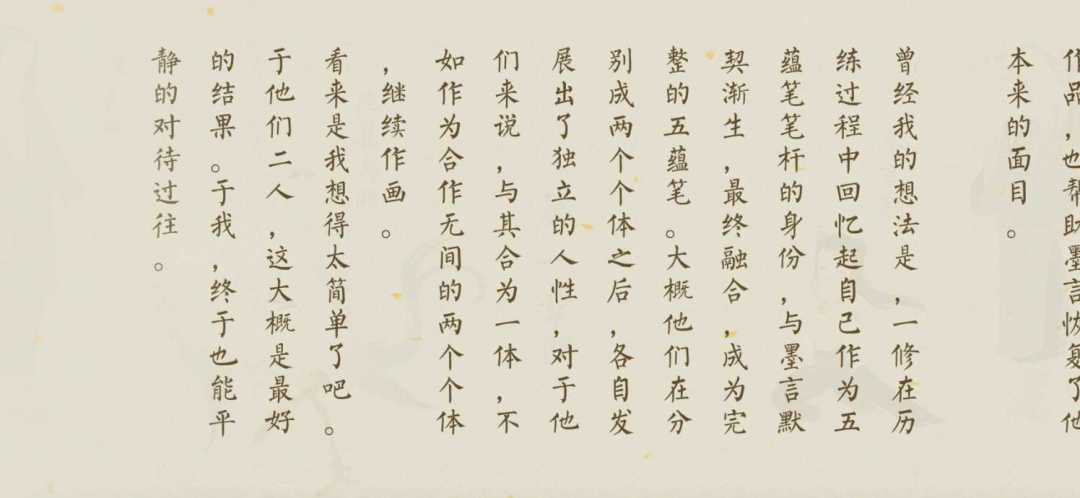 作品，也帮助墨言恢复了他
本来的面目。
曾经我的想法是，一修在历
练过程中回忆起自己作为五
蕴笔笔杆的身份，与墨言默
契渐生，最终融合，成为完
整的五蕴笔。大概他们在分
别成两个个体之后，各自发
展出了独立的人性，对于他
们来说，与其合为一体，不
如作为合作无间的两个个体
，继续作画。
看来是我想得太简单了吧。
于他们二人，这大概是最好
的结果。于我，终于也能平
静的对待过往。